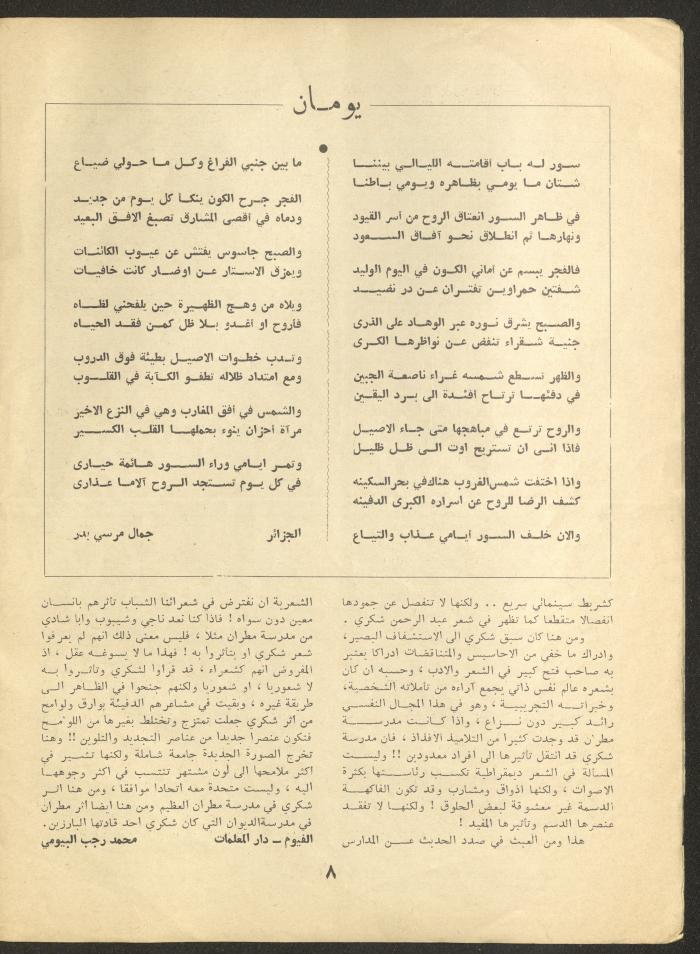 يومان
سور له باب أقامته الليالي بيننا
شتان ما يومي بظاهره ويومي باطنا
في ظاهر السور انعتاق الروح من أسر القيود
ونهارها ثم انطلاق نحو آفاق السعود
فالفجر يبسم عن أماني الكون في اليوم الوليد
شفتين حمراوين تفتران عن در نضيد
والصبح يشرق نوره عبر الوهاد على الذرى
جنية شقراء تنفض عن نواظرها الكرى
والظهر تسطع شمسه غراء ناصعة الجبين
في دفئها ترتاح أفئدة الى برد اليقين
والروح ترتع في مباهجها متى جاء الاصيل
فاذا انى ان تستريح اوت الى ظل ظليل
واذا اختفت شمس الغروب هناك في بحر السكينه
كشف الرضا للروح عن اسراره الكبرى الدفينه
والآن خلف السور أيامي عذاب والتياع
ما بين جنبي الفراغ وكل ما حولي ضياع
الفجر جرح الكون ينكا كل يوم من جديد
ودماه في أقصى المشارق تصبغ الافق البعيد
والصبح جاسوس يفتش عن عيوب الكائنات
ويمزق الاستار عن اوضار كانت خافيات
ويلاه من وهج الظهيرة حين يلفحني لظاه
فأروح او اغدو بلا ظل كمن فقد الحياه
وتدب خطوات الاصيل بطيئة فوق الدروب
ومع امتداد ظلاله تطفو الكآبة في القلوب
والشمس في أفق المغارب وهي في النزع الاخير
مرآة أحزان ينوء بحملها القلب الكسير
وتمر ايامي وراء السور هائمة حيارى
في كل يوم تستجد الروح آلاما عذارى
الجزائر جمال مرسي بدر
كشريط سينمائي سريع .. ولكنها لا تنفصل عن جمودها
انفصالا متقطعا كما تظهر في شعر عبد الرحمن شكري .
ومن هنا كان سبق شكري الى الاستشفاف البصير،
وادراك ما خفي من الاحاسيس والمتناقضات ادراكا يعتبر
به صاحب فتح كبير في الشعر والادب ، وحسبه ان كان
بشعره عالم نفس ذاتي يجمع آراءه من تأملاته الشخصية،
وخبراته التجريبية ، وهو في هذا المجال النفسي
رائد كبير دون نزاع ، واذا كانت مدرسة
مطران قد وجدت كثيرا من التلاميذ الافذاذ ، فان مدرسة
شكري قد انتقل تأثيرها الى أفراد معدودين !! وليست
المسألة في الشعر ديمقراطية تكسب رئاستها بكثرة
الاصوات ، ولكنها اذواق ومشارب وقد تكون الفاكهة
الدسمة غير معشوقة لبعض الحلوق ! ولكنها لا تفقد
عنصرها الدسم وتأثيرها المفيد !
هذا ومن العبث في صدد الحديث عن المدارس
الشعرية ان نفترض في شعرائنا الشباب تأثرهم بانسان
معين دون سواه ! فاذا كنا نعد ناجي وشيبوب وابا شادي
من مدرسة مطران مثلا ، فليس معنى ذلك انهم لم يعرفوا
شعر شكري او يتأثروا به ! فهذا ما لا يسوغه عقل ، اذ
المفروض انهم كشعراء ، قد قرأوا لشكري وتأثروا به
لا شعوريا ، او شعوريا ولكنهم جنحوا في الظاهر الى
طريقة غيره ، وبقيت في مشاعرهم الدفينة بوارق ولوامح
من اثر شكري جعلت تمتزج وتختلط بغيرها من اللوامح
فتكون عنصرا جديدا من عناصر التجديد والتلوين !! وهنا
تخرج الصورة الجديدة جامعة شاملة ولكنها تشير في
اكثر ملامحها الى لون مشتهر تنتسب في اكثر وجوهها
اليه ، وليست متحدة معه اتحادا موافقا ، ومن هنا اثر
شكري في مدرسة مطران العظيم ومن هنا ايضا اثر مطران
في مدرسة الديوان التي كان شكري احد قادتها البارزين.
الفيوم ــ دار المعلمات محمد رجب البيومي
٨